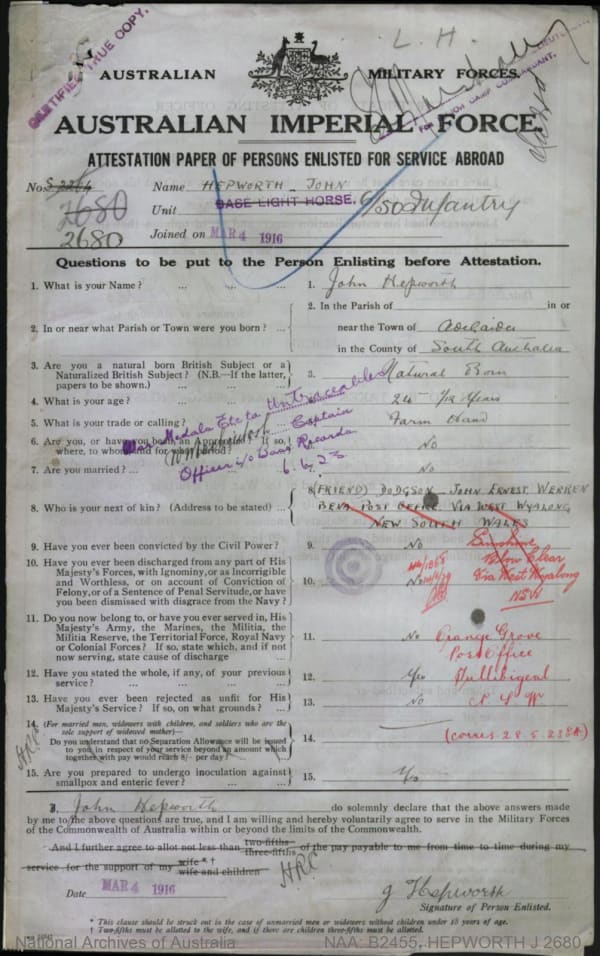 CERTIFIED TRUE COPY.
L. H.
AUSTRALIAN MILITARY FORCES.
AUSTRALIAN IMPERIAL FORCE.
ATTESTATION PAPER OF PERSONS ENLISTED FOR SERVICE ABROAD
No. S 2264 Name HEPWORTH JOHN
2680
Unit BASE LIGHT HORSE. 6/50 Infantry
2680 Joined on MAR 4 1916
Questions to be put to the Person Enlisting before Attestation.
1. What is your Name? ... ... ... 1. John Hepworth
2. In or near what Parish or Town were you born? ... 2. In the Parish of in or
near the Town of Adelaide
in the County of South Australia
3. Are you a natural born British Subject or a Naturalized British Subject? (N.B.—If the latter, papers to be shown.) ... 3. Natural Born
4. What is your age? ... 24
5. What is your trade or calling? Farm Hand
War Medals Etc to Untraceable
Captain
Officer i/c Base Records
6.6.23
6. Are you, or have you been an Apprentice? If so, where, to whom, and for what period? No
7. Are you married? ... No
8. Who is your next of kin? (Address to be stated) ... 8. (FRIEND) DODGSON JOHN ERNEST WERREN
BENA POST OFFICE VIA WEST WYALONG
NEW SOUTH WALES
9. Have you ever been convicted by the Civil Power? 9. No
Via West Wyalong
NSW
10. Have you ever been discharged from any part of His Majesty's Forces, with Ignominy, or as Incorrigible and Worthless, or on account of Conviction of Felony, or of a Sentence of Penal Servitude, or have you been dismissed with disgrace from the Navy? 10. No
11. Do you now belong to, or have you ever served in, His Majesty's Army, the Marines, the Militia, the Militia Reserve, the Territorial Force, Royal Navy or Colonial Forces? If so, state which, and if not now serving, state cause of discharge 11. No
Orange Grove
Post Office
Tullibigeal
N S W
12. Have you stated the whole, if any, of your previous service? ... ... ... 12. Yes
13. Have you ever been rejected as unfit for His Majesty's Service? If so, on what grounds? ... 13. No
14. (For married men, widowers with children, and soldiers who are the sole support of widowed mother)—
Do you understand that no Separation Allowance will be issued to you in respect of your service beyond an amount which together with pay would reach 8/- per day? 14.
15. Are you prepared to undergo inoculation against smallpox and enteric fever? ... ... 15. Yes
I, John Hepworth do solemnly declare that the above answers made
by me to the above questions are true, and I am willing and hereby voluntarily agree to serve in the Military Forces
of the Commonwealth of Australia within or beyond the limits of the Commonwealth.
And I further agree to allot not less than two-fifths three-fifths of the pay payable to me from time to time during my
service for the support of my wife * † wife and children
Date MAR 4 1916 J Hepworth
Signature of Person Enlisted.
* This clause should be struck out in the case of unmarried men or widowers without children under 18 years of age.
† Two-fifths must be allotted to the wife, and if there are children three-fifths must be allotted.
National Archives of Australia NAA: B2455, HEPWORTH J 2680